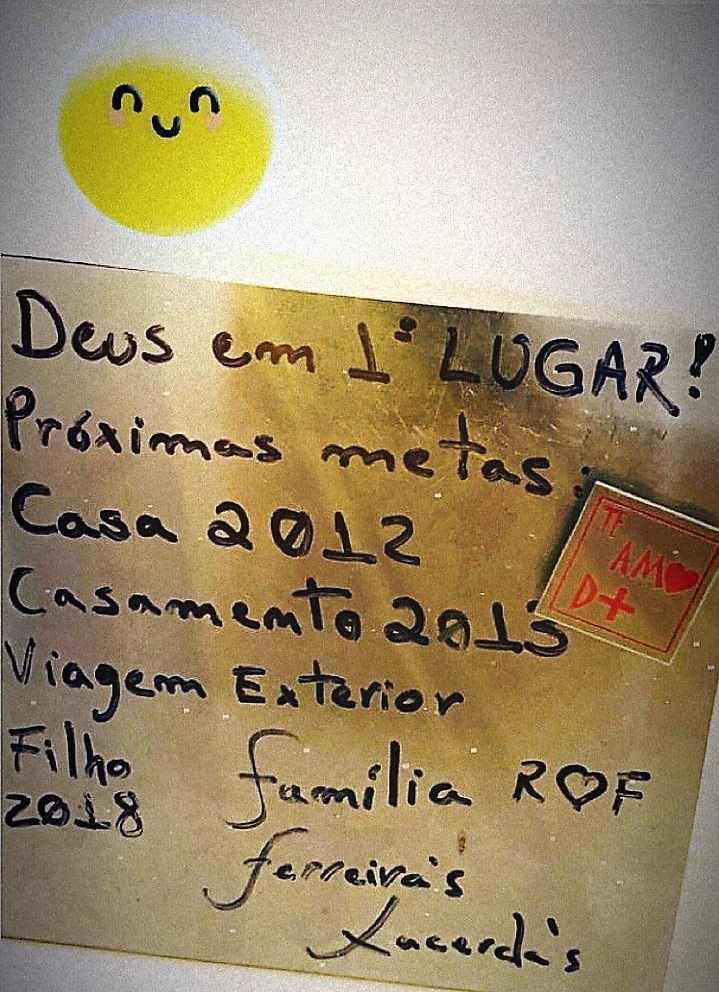 Deus em 1º LUGAR!
Próximas metas:
Casa 2012
Casamento 2013
Viagem Exterior
Filho
2018
família R♡F
ferreira's
Lacerda's
TI
AM♥
D+